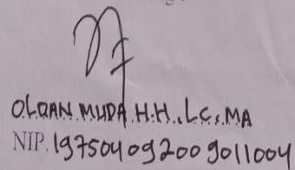 OLQAN MUDA H.H., L.C., MA
NIP. 197504092009011004